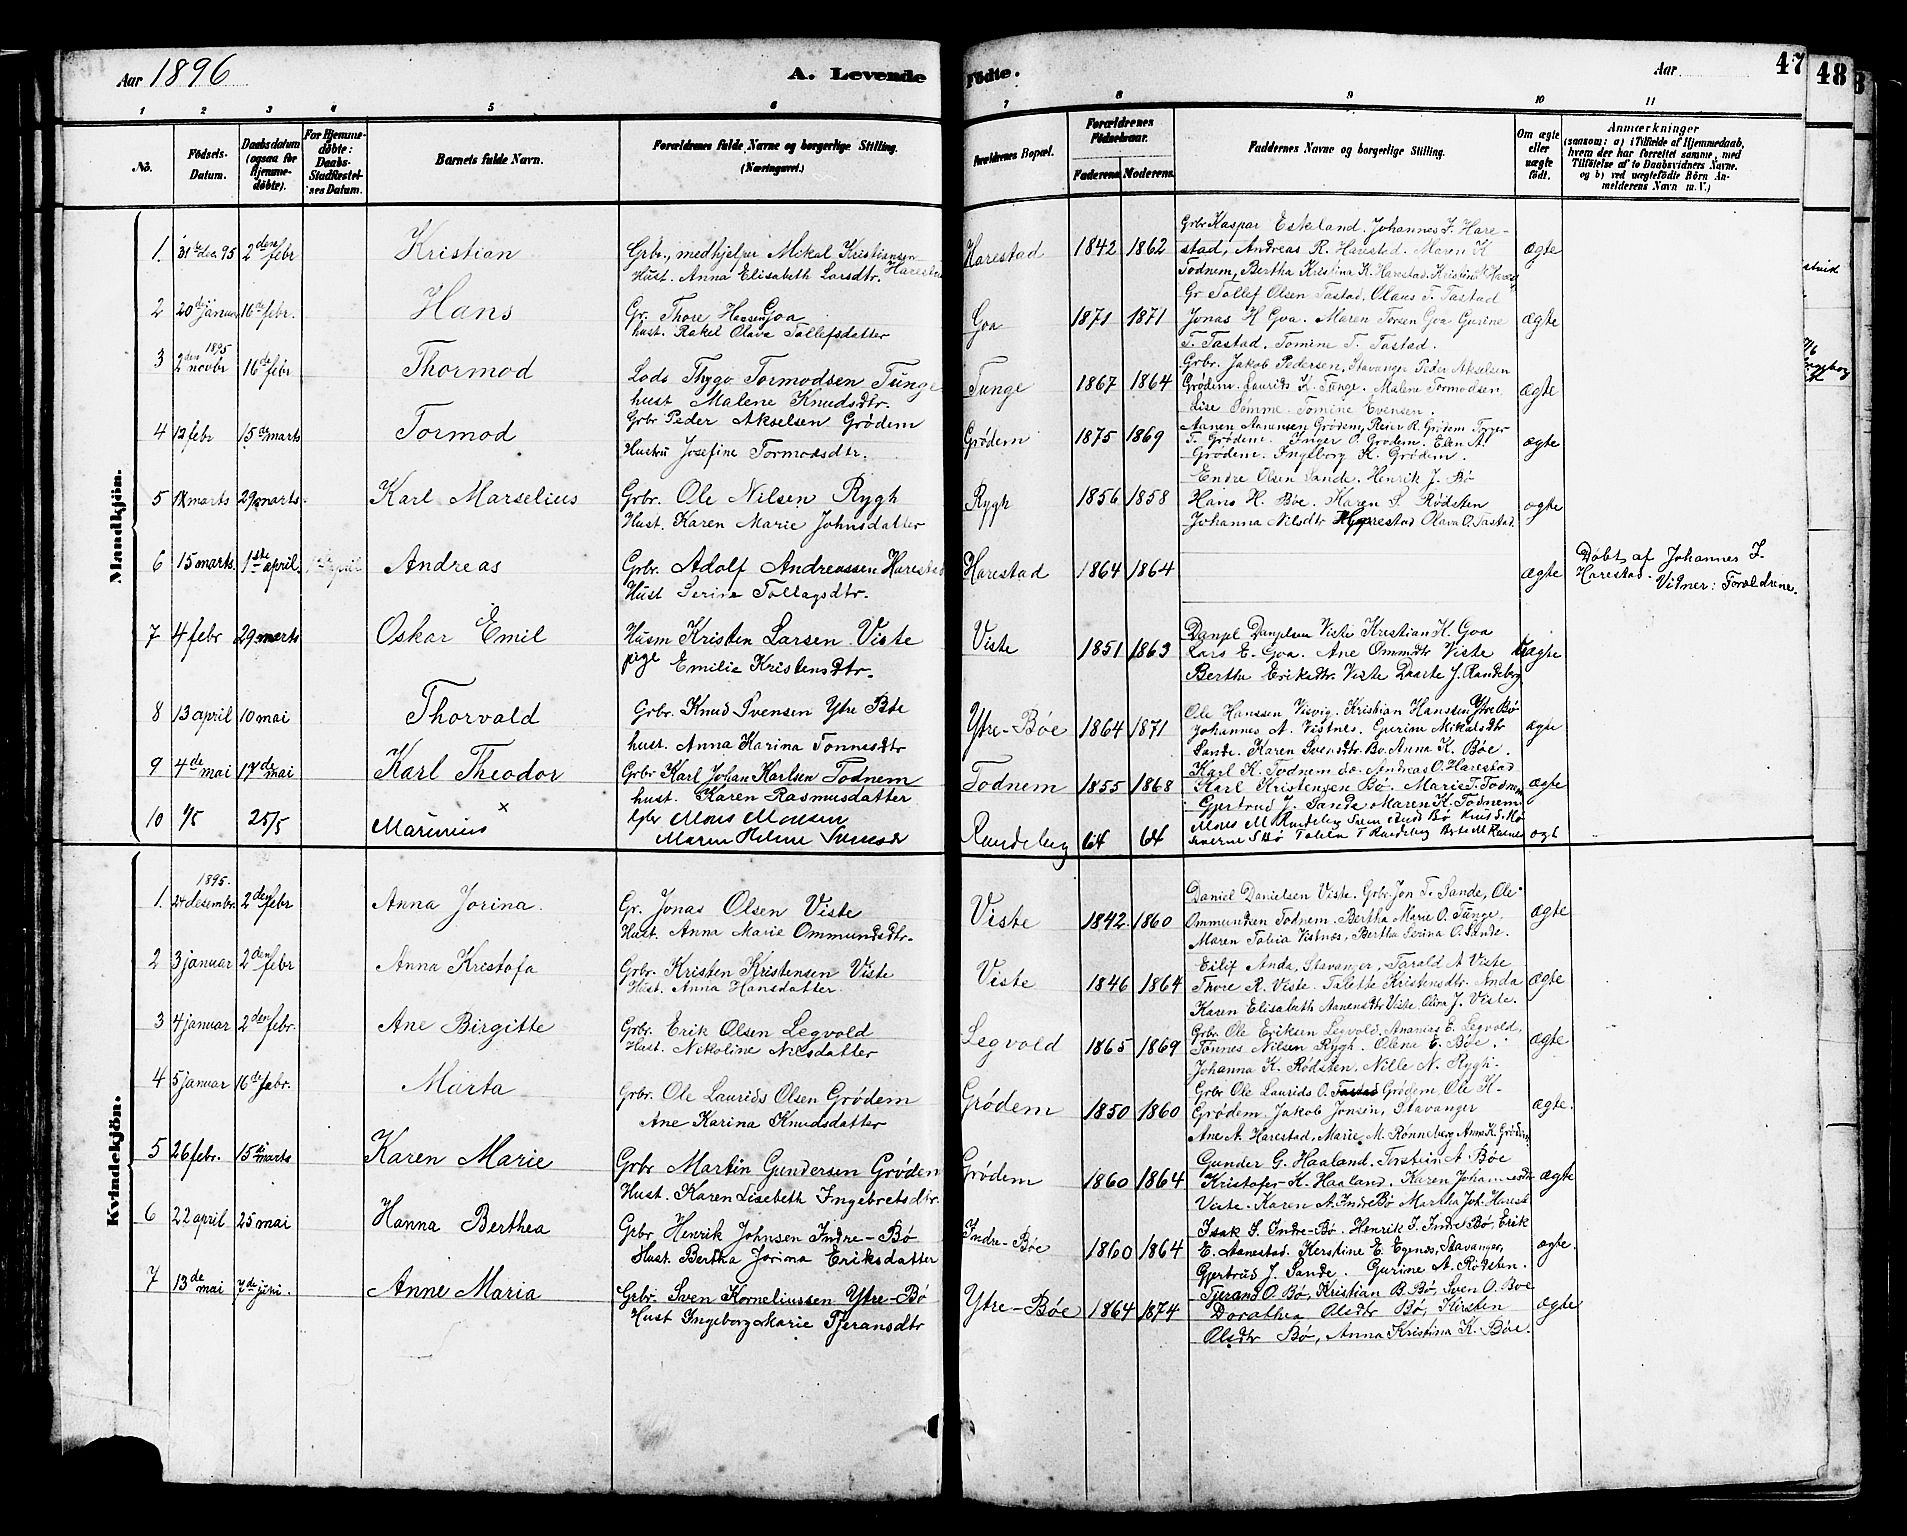 Aar 1896
A. Levende
Fødte.
Aar
47
48
1 2 3 4 5 6
7 8 9 10 11
No.
Fødsels-
Datum.
Daabsdatum
(ogsaa for
Hjemme-
døbte).
For Hjemme-
døbte:
Daabs-
Stadfæstel-
ses Datum.
Barnets fulde Navn.
Forældrenes fulde Navne og borgerlige Stilling.
(Næringsvei.)
Forældrenes Bopæl.
Forældrenes
Fødselsaar.
Faderens
Moderens
Faddernes Navne og borgerlige Stilling.
Om ægte
eller
uægte
født.
Anmærkninger
(saasom: a) i Tilfælde af Hjemmedaab,
hvem der har forrettet samme, med
Tilføielse af to Daabsvidners Navne.
og b) ved uægtefødte Børn An-
melderens Navn m. V.)
Mandkjön.
1. 31te dec. 95 2den febr Kristian
Grbr., medhjelper Mikal Kristiansen
Hust. Anna Elisabeth Larsdtr. Harestad
Harestad 1842 1862
Grbr Kaspar Eskeland. Johannes J. Hare-
stad, Andreas R. Harestad. Maren K
Todnem, Bertha Kristina K. Harestad. Kristine
ægte
2 20de januar 16de febr. Hans
Gr. Thore Hansen Goa
hust. Rakel Olava Tollefsdatter
Goa 1871 1871
Gr Tollef Olsen Tastad. Olaus T. Tastad
Jonas H Goa. Maren Torsen Goa Gurine
T. Tastad. Tomine T. Tastad.
ægte
3 1895 2den novbr 16de febr Thormod
Lods Thygo Tormodsen Tunge
hust Malene Knudsdtr.
Tunge 1867 1864
Grbr. Jakob Pedersen, Stavanger Peder Akselsen
Grødem. Laurids K. Tunge. Malene Tormodsen
Lise Sømme. Tomine Evensen.
ægte
4 12 febr 15de marts Tormod
Grbr Peder Akselsen Grødem
Hustru Josefine Tormodsdtr.
Grödem 1875 1869
Aanen Aanensen Grødem, Reier R. Grødem Torger
T. Grødem. Inger O. Grødem. Elen A.
Grødem. Ingeborg K. Grødem.
ægte
5 12 marts 29 marts. Karl Marselius
Grbr. Ole Nilsen Rygh
Hust. Karen Marie Johnsdatter
Rygh 1856 1858
Endre Olsen Sande. Henrik J. Bø
Hans H. Bøe. Karen S. Rødsten
Johanna Nilsdtr Harestad Olava O. Tastad
ægte
6 15 marts. 1ste april. 1ste april Andreas
Grbr. Adolf Andreassen Harestad
Hust Serine Tollagsdtr.
Harestad 1864 1864
ægte
Døbt af Johannes J.
Harestad.
Vidner: Forældrene.
7 4 febr 29 marts Oskar Emil
Husm Kristen Larsen Viste
pige Emilie Kristensdtr.
Viste 1851 1863
Danjel Danjelsen Viste Krestian K. Goa
Lars E. Goa. Ane Ommdtr Viste
Bertha Eriksdtr. Viste Daarte J. Randeberg
Uægte
8 13 april 10 mai Thorvald
Grbr. Knud Svensen Ytre Bøe
hust. Anna Karina Tonnesdtr
Ytre-Bøe 1864 1871
Ole Hanssen Visvig. Kristian Hanssen Ytre Bø
Johannes A. Vistnes. Gurine Mikalsdtr
Sande. Karen Svensdtr Bø. Anna K. Bøe.
ægte
9 4de mai 17de mai Karl Theodor
Grbr Karl Johan Karlsen Todnem
hust. Karen Rasmusdatter
Todnem 1855 1868
Karl K. Todnem do. Andreas O. Harestad
Karl Kristensen Bø. Marie T. Todnem
Gjertrud J. Sande. Maren K. Todnem
ægte
10 25/5 Marinius ×
Mons Monsen
Maren Helene
Randeberg 64 64
Mons M Randeberg
ægt
Kvindekjön.
1. 1895. 24 desembr. 2den febr Anna Jorina.
Gr. Jonas Olsen Viste
Hust. Anna Marie Ommundsdtr.
Viste 1842 1860
Daniel Danielsen Viste. Grbr. Jon T. Sande, Ole
Ommundsen Todnem. Bertha Marie O. Tunge,
Maren Tobia Vistnæs, Bertha Serina O. Sande.
ægte
2 3 januar 2den febr Anna Kristofa
Grbr. Kristen Kristensen Viste
Hust. Anna Hansdatter.
Viste 1846 1864
Eilif Anda, Stavanger, Tarald A Viste
Thore R. Viste. Talette Kristensdtr. Anda
Karen Elisabeth Aanensdtr Viste. Oliva J. Viste.
ægte
3 4 januar 2den febr. Ane Birgitte
Grbr. Erik Olsen Legvold
Hust. Nikoline Nilsdatter
Legvold 1865 1869
Grbr. Ole Eriksen Legvold. Ananias E. Legvold,
Tønnes Nilsen Rygh. Olene E. Bøe.
Johanna K. Rødsten, Nille N. Rygh.
ægte
4 5 januar 16de febr. Marta
Grbr. Ole Laurids Olsen Grødem
Ane Karina Knudsdatter
Grödem 1850 1860
Grbr Ole Laurids O. Tastad Grødem, Ole K.
Grødem. Jakob Jonsen, Stavanger
Ane A. Harestad, Marie M. Rønneberg Anna K. Grødem
ægte.
5 26 febr. 15de marts Karen Marie
Grbr Martin Gundersen Grødem
Hust. Karen Lisebeth Ingebretsdtr.
Grödem 1860 1864
Gunder G. Haaland. Torstein A. Bøe
Kristofer K. Haaland. Karen Johannesdtr
Viste. Karen A. Indre Bø Martha Joh. Harest
ægte
6 22 april 25 mai Hanna Berthea
Grbr Henrik Johnsen Indre-Bø
Hust. Bertha Jorina Eriksdatter
Indre-Bøe 1860 1864
Isak S. Indre-Bø. Henrik J. Indre Bø, Erik
E. Aanestad. Kerstine E. Egenes, Stavanger,
Gjertrud J. Sande. Gurine A. Rødsten.
ægte.
7 13de mai 7de juni. Anne Maria
Grbr. Sven Korneliussen Ytre-Bø
Hust Ingeborg Marie Tjeransdtr
Ytre-Bøe 1864 1874
Tjerand O. Bø, Kristian B. Bø, Sven O. Bøe
Dorothea Olsdtr Bø, Kirsten
Olsdtr Bø, Anna Kristina K. Bøe.
ægte